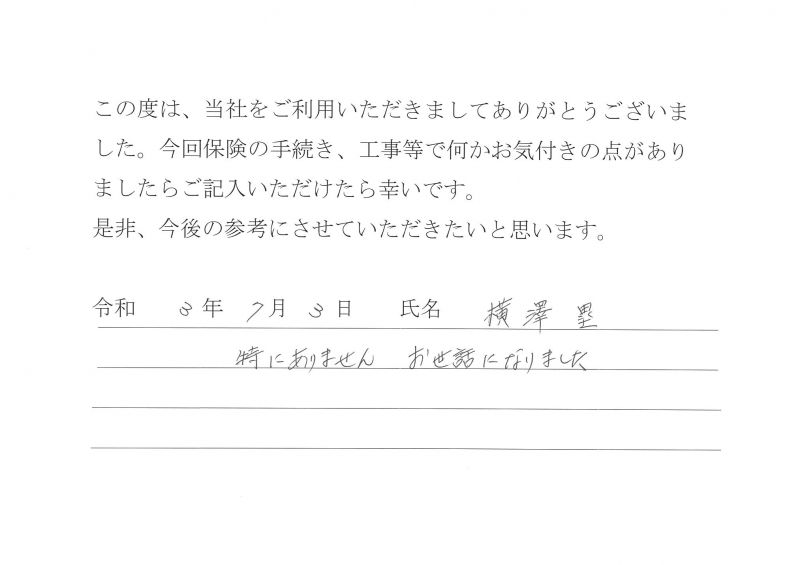 この度は、当社をご利用いただきましてありがとうございま
した。今回保険の手続き、工事等で何かお気付きの点があり
ましたらご記入いただけたら幸いです。
是非、今後の参考にさせていただきたいと思います。
令和 3年 7月 3日 氏名 横澤
特にありません お世話になりました